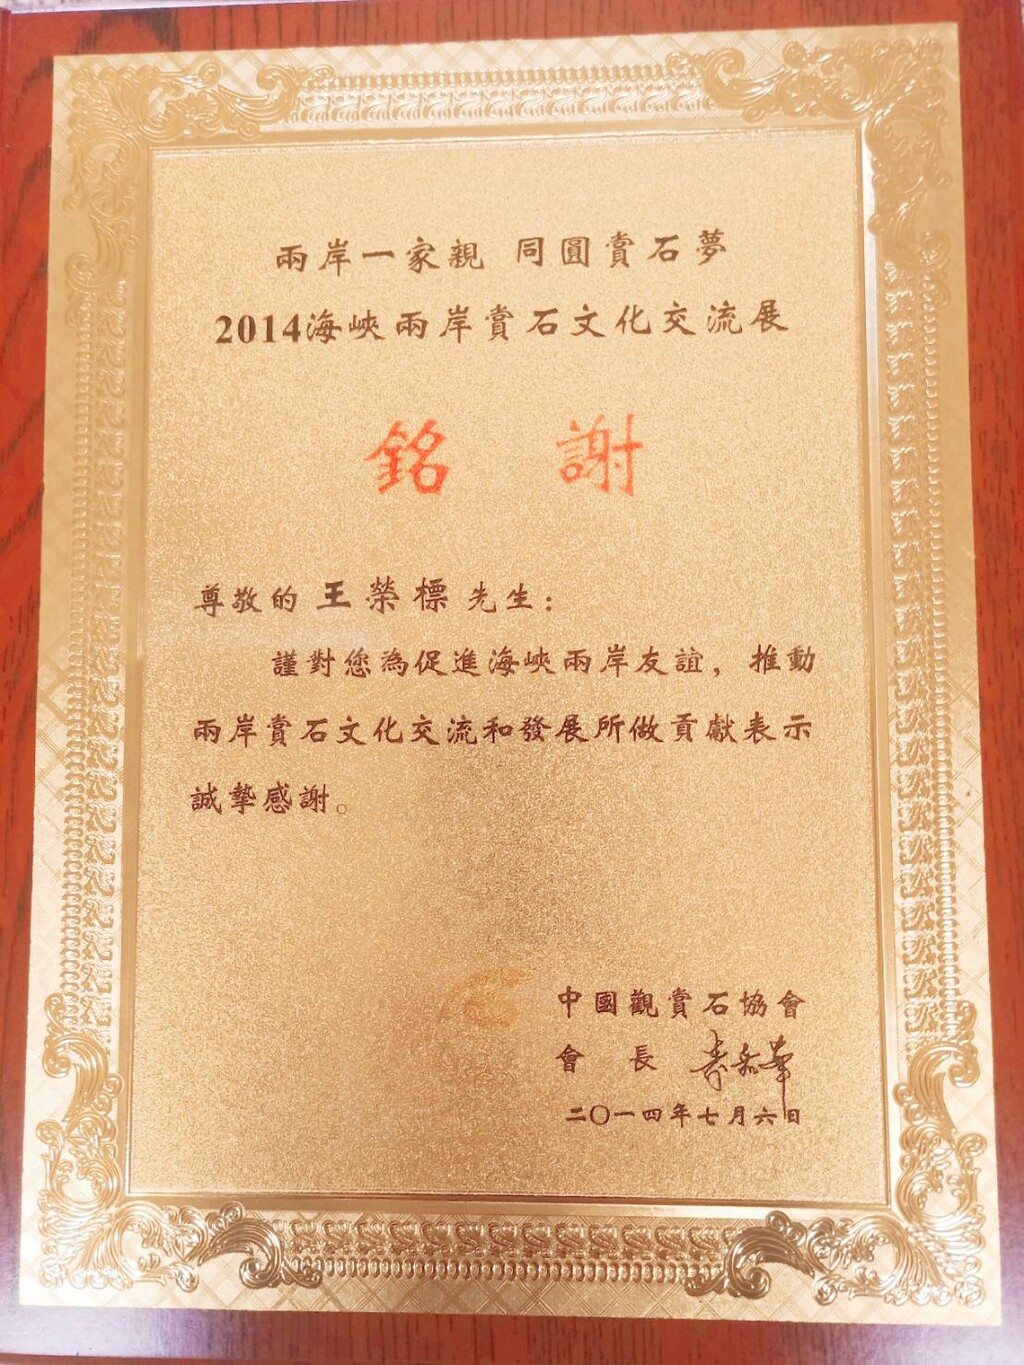 兩岸一家親 同圓賞石夢
2014海峽兩岸賞石文化交流展
銘 謝
尊敬的 王榮標 先生：
謹對您為促進海峽兩岸友誼，推動
兩岸賞石文化交流和發展所做貢獻表示
誠摯感謝。
中國觀賞石協會
會 長
二〇一四年七月六日